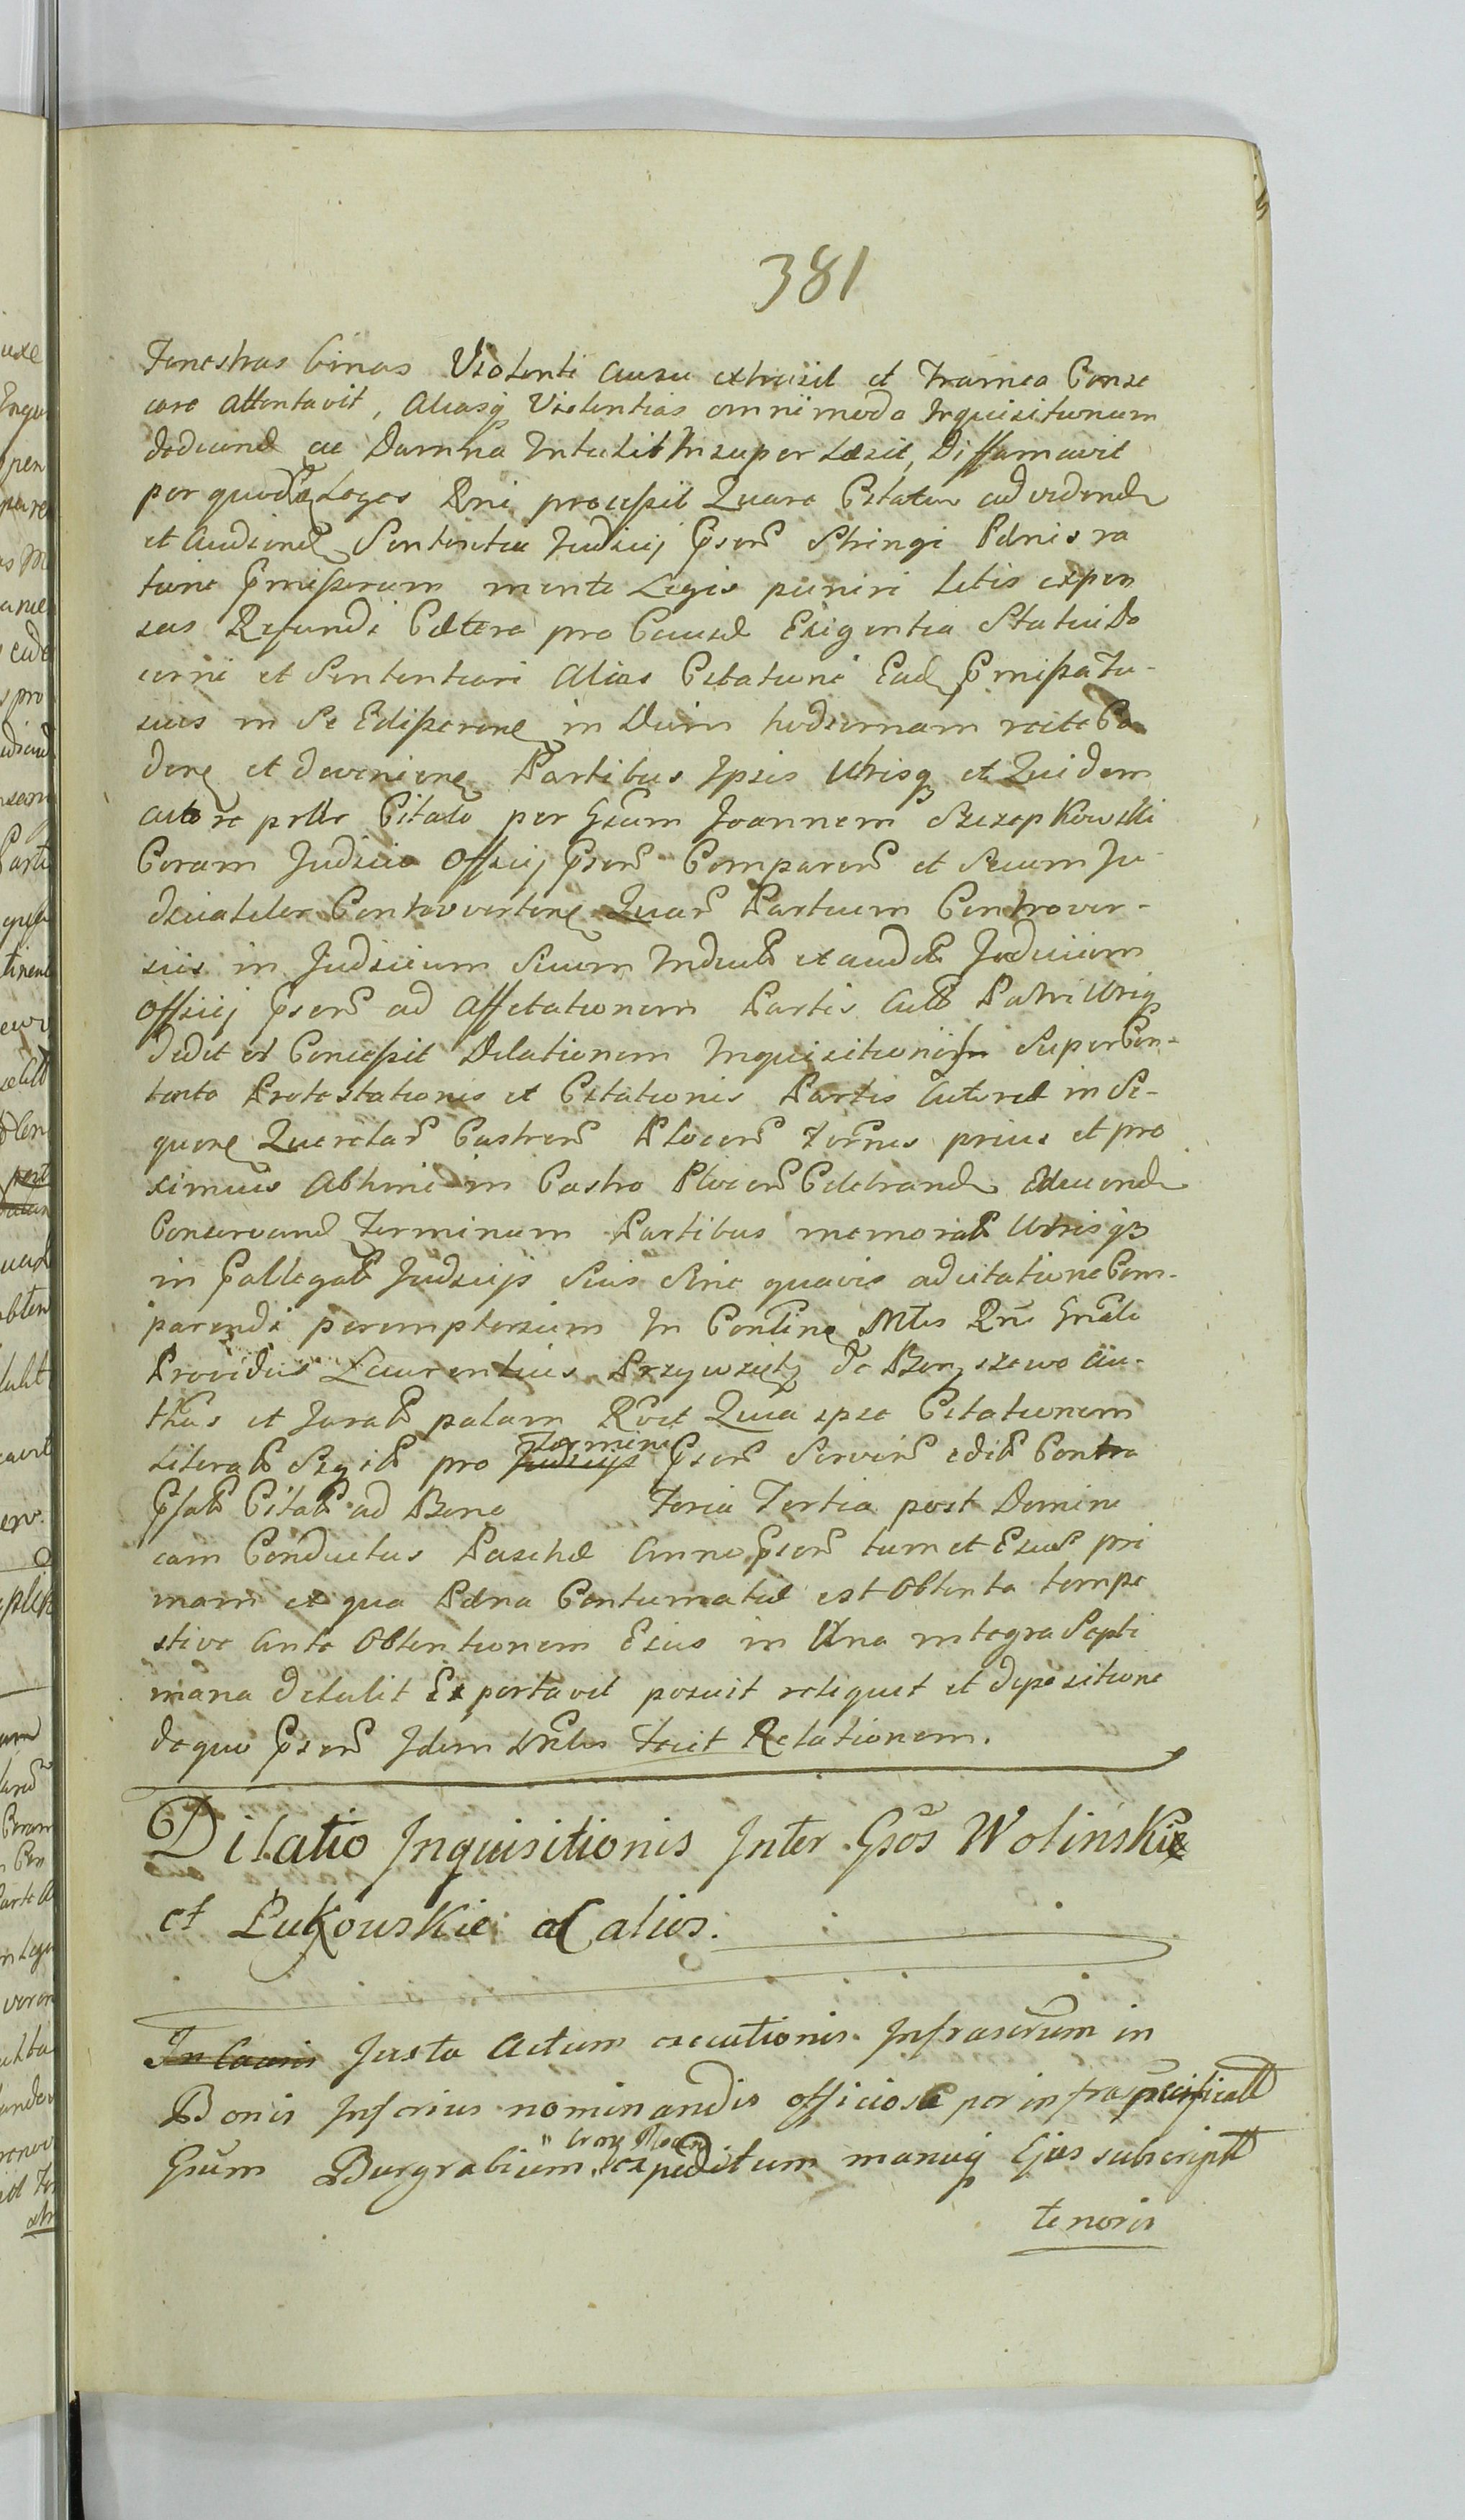 381
Fenestras binas Violenti ausu extrusit et Framea Conse
care attentavit, Aliasq Violentias omnimoda Inquisitionum
deducend ac Damna Intulit Insuper Læsit, Diffamavit
per quod Leges Rni processit Quare Citatur ad videnda
et Audiend Sententia Judicij Psens Stringi Pænis ra
tione Pmissorum mente Legis puniri Litis expen
sas Refundi Cætera pro Causæ Exigentia Statui De
cerni et Sententiari Alias Citatione Ead Pmissa Fu-
sius in Se Edisseren in Diem hodiernam recte Ca
den et devenien Partibus Ipsis Utrisq et Quidem
actore pltte Citato per Gsum Joannem Szczepkowski
Coram Judicio Officij Psens Comparens et Suum Ju-
dicialiter Controverten Quar Partium Controver-
siis in Judicium Suum Induct exaudit Judicium
Officij Psens ad Affectationem Partis Citt Patri Utriq
dedit et Concessit Dilationem Inquisitionis Super Con-
tenta Protestationis et Citationis Partis Actoreæ in Se-
quen Querelar Castrens Plocens Termis prius et pro
ximius Abhinc in Castro Plocens Celebrand Educend
Conservand Terminum Partibus memorat Utrisq
in Pallegat Judicijs Suis Sine quavis adcitatione Com-
parendi peremptorium In Contine Mtis Rni Gnalis
Providus Laurentius Przywzięty De Bonyszewo Au-
thus et Jurat palam Rvit Quia ipse Citationem
Literat Sigit pro Judicijs Termini Psens Serviens edit Contra
Psat Citat ad Bona Feria Tertia post Domini
cam Conductus Paschæ Anno Psens tum et Eius pri
mam ex qua Pæna Contumatiæ est Obtenta tempe
stive Ante Obtentionem Eius in Una integra Septi
mana detulit Exportavit posuit reliquit et depositione
de quo Psens Idem Mtlis Fecit Relationem.
Dilatio Inquisitionis Inter Gsos Wolinskie
et Łukowskie ac alios.
In Causis Juxta Actum executionis Infrascrum in
Bonis Inferius nominandis officiose per infraspecificatt
Gsum Burgrabium expeditum manuq Ejus subscriptt
tenoris